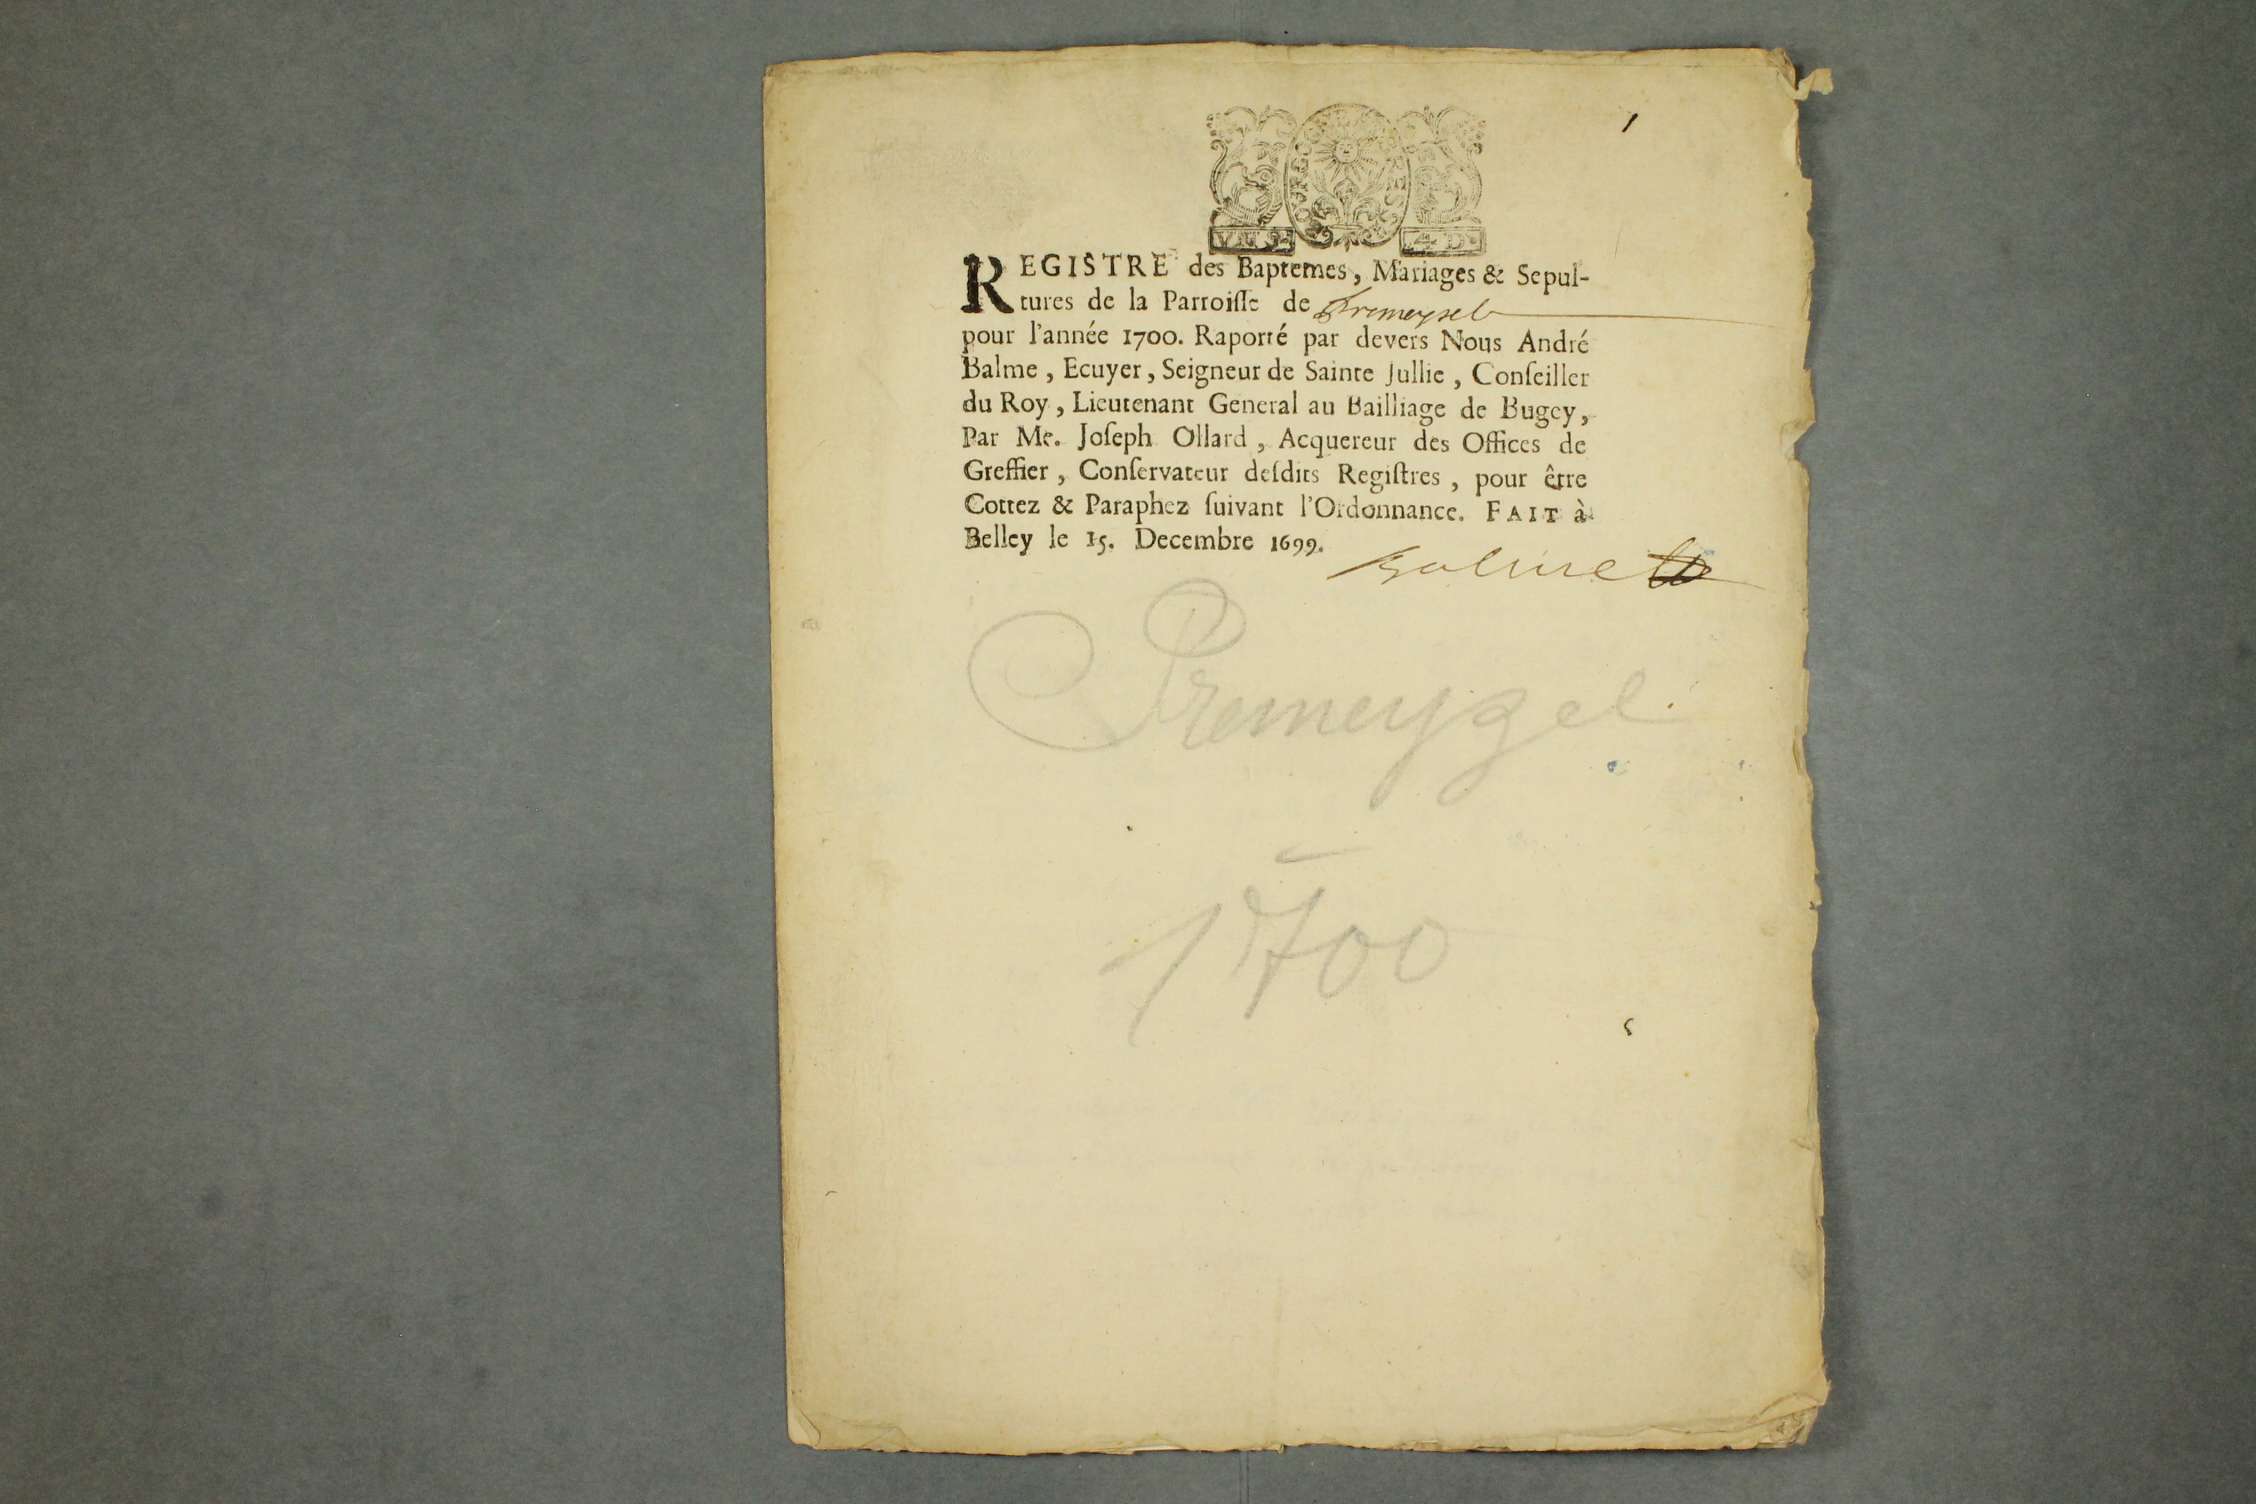 1
VIII S.
4 D.
REGISTRE des Baptemes, Mariages & Sepul-
tures de la Parroisse de Premeysel
pour l'année 1700. Raporté par devers Nous André
Balme, Ecuyer, Seigneur de Sainte Jullie, Conseiller
du Roy, Lieutenant General au Bailliage de Bugey,
Par Me. Joseph Ollard, Acquereur des Offices de
Greffier, Conservateur desdits Registres, pour être
Cottez & Paraphez suivant l'Ordonnance. FAIT à
Belley le 15. Decembre 1699.
Balme
Premeyzel
1700